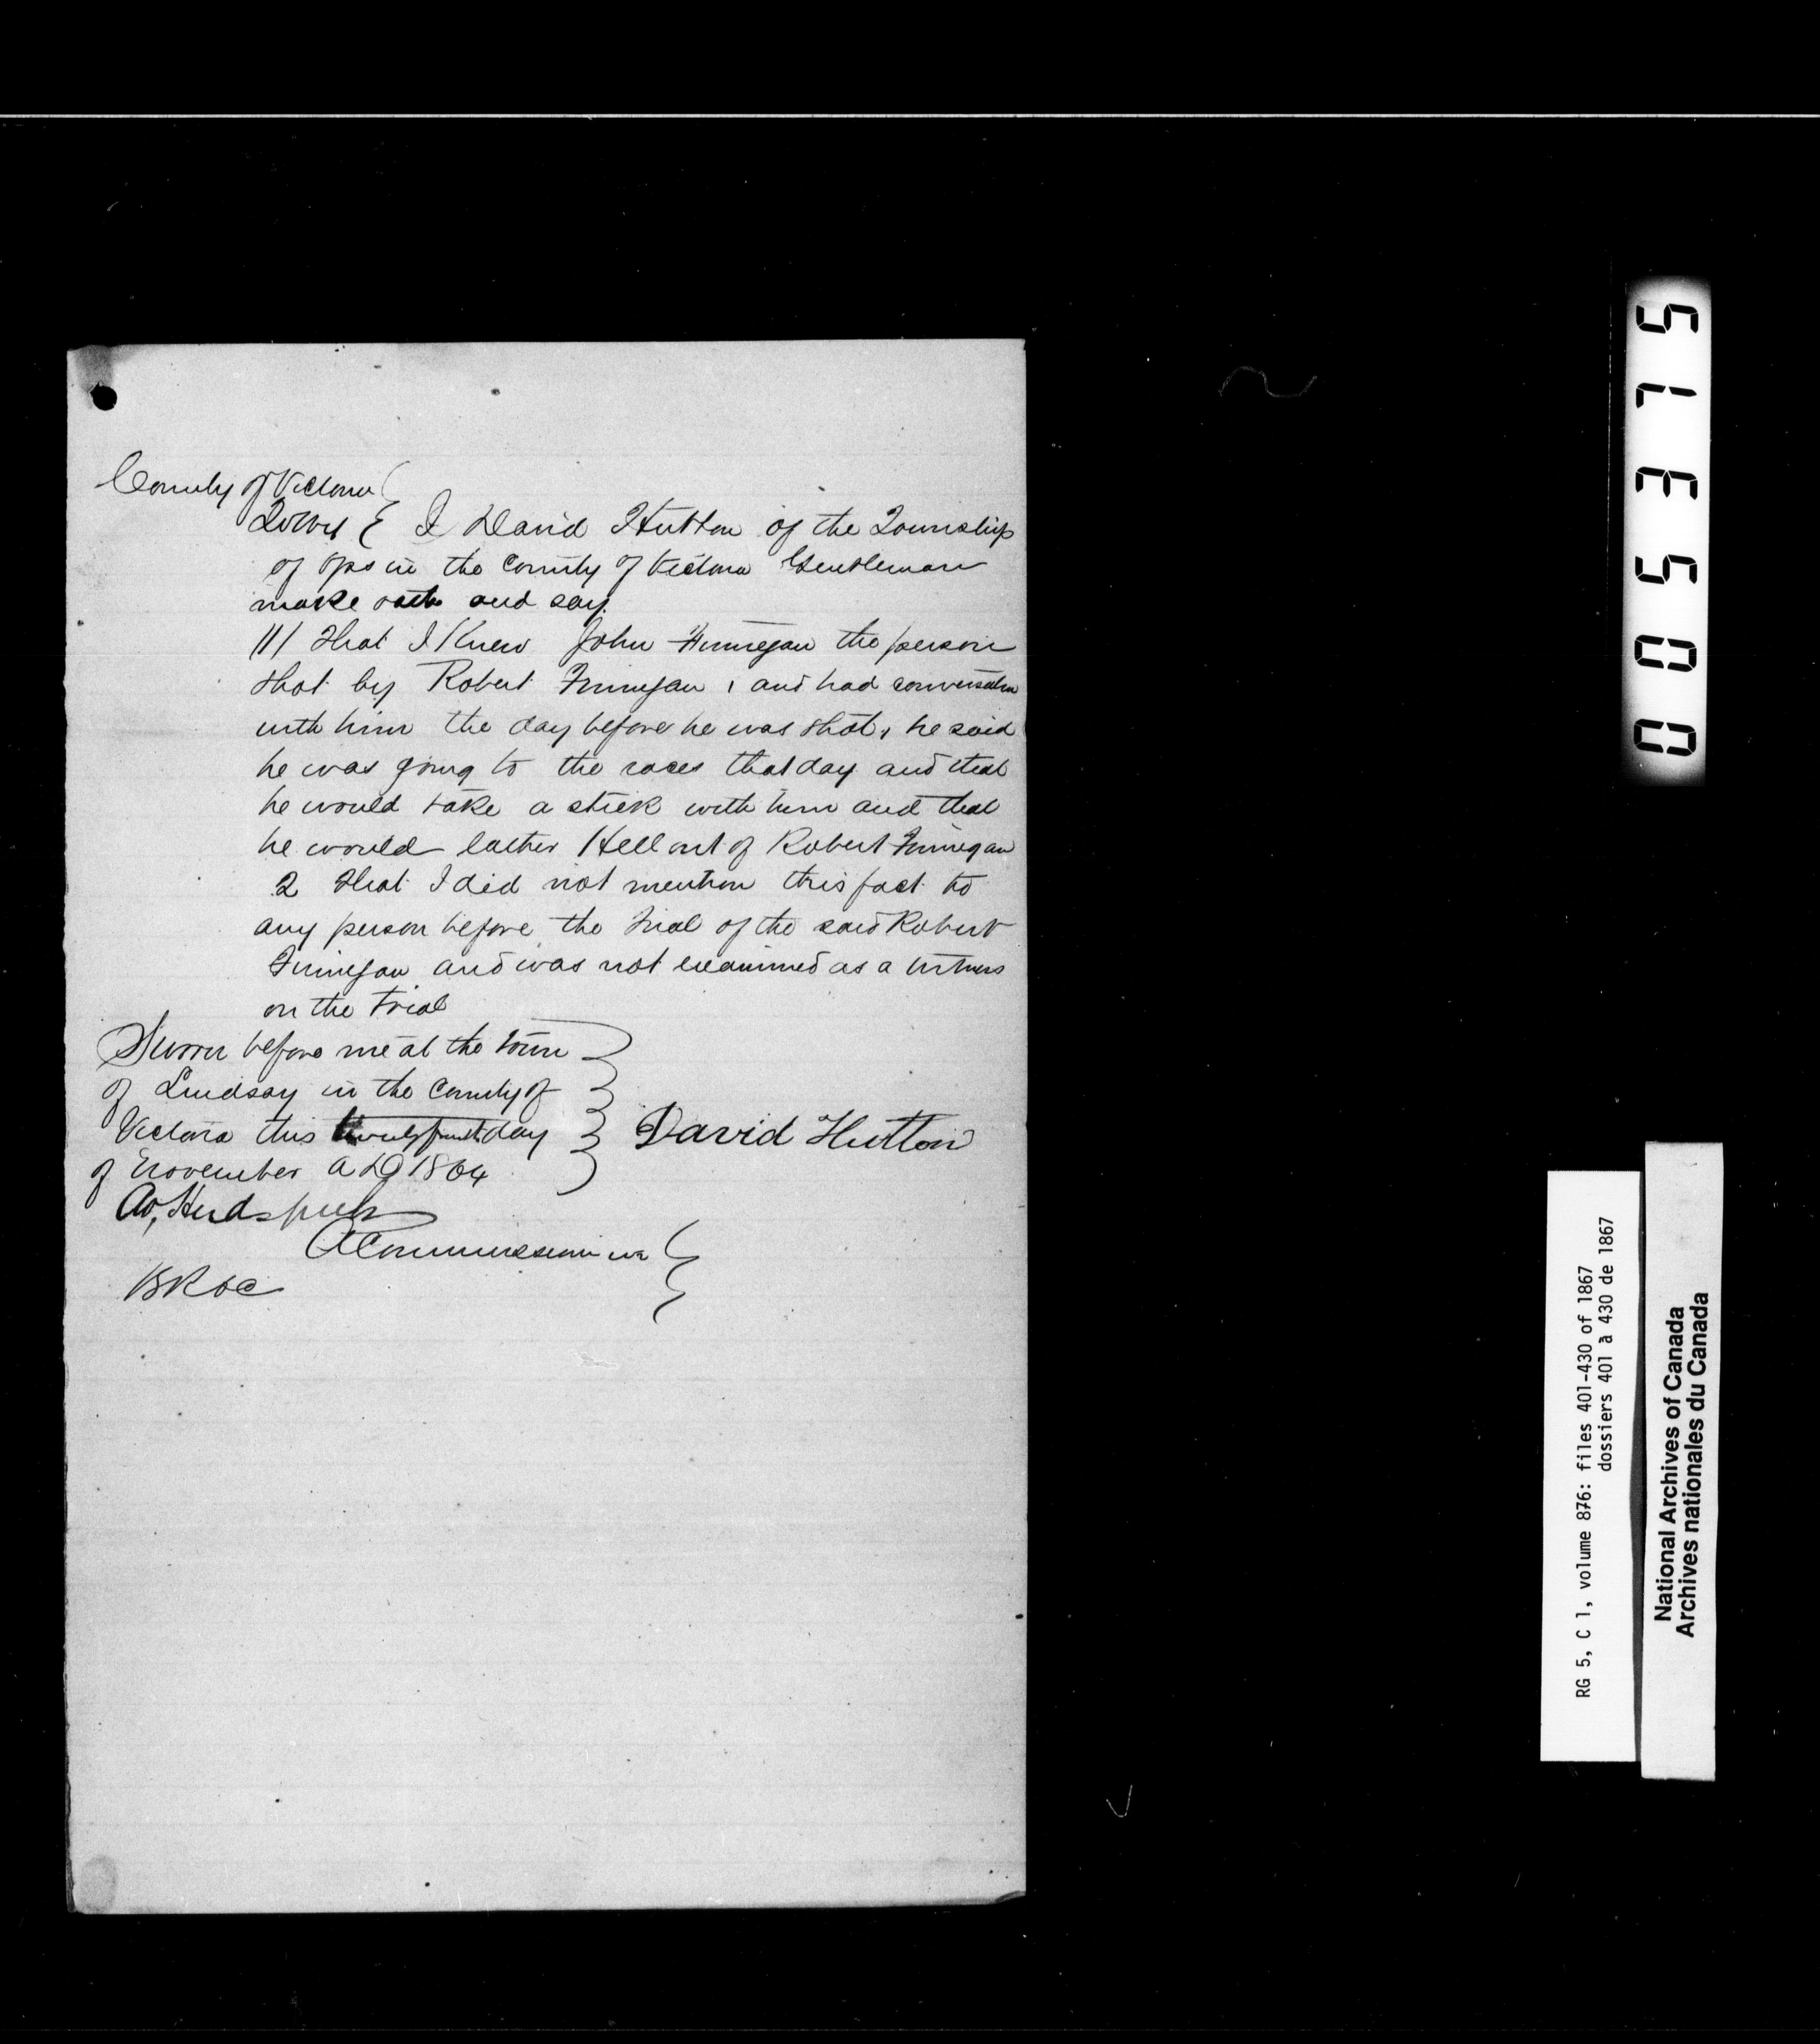 County of Victoria
To Wit I David Hutton of the Township
of Ops in the County of Victoria Gentleman
make oath and say.
/1/ That I Knew John Finnegan the person
shot by Robert Finnegan, and had conversation
with him the day before he was shot, he said
he was going to the races that day and that
he would take a stick with him and that
he would lather Hell out of Robert Finnegan
2 That I did not mention this fact to
any person before the trial of the said Robert
Finnegan and was not examined as a witness
on the trial
Sworn before me at the Town
of Lindsay in the County of
Victoria this day
of November A D 1864
David Hutton
A, Hudspeth
A Commissioner in
B R &c
005375
RG 5, C 1, volume 876: files 401-430 of 1867
dossiers 401 à 430 de 1867
National Archives of Canada
Archives nationales du Canada